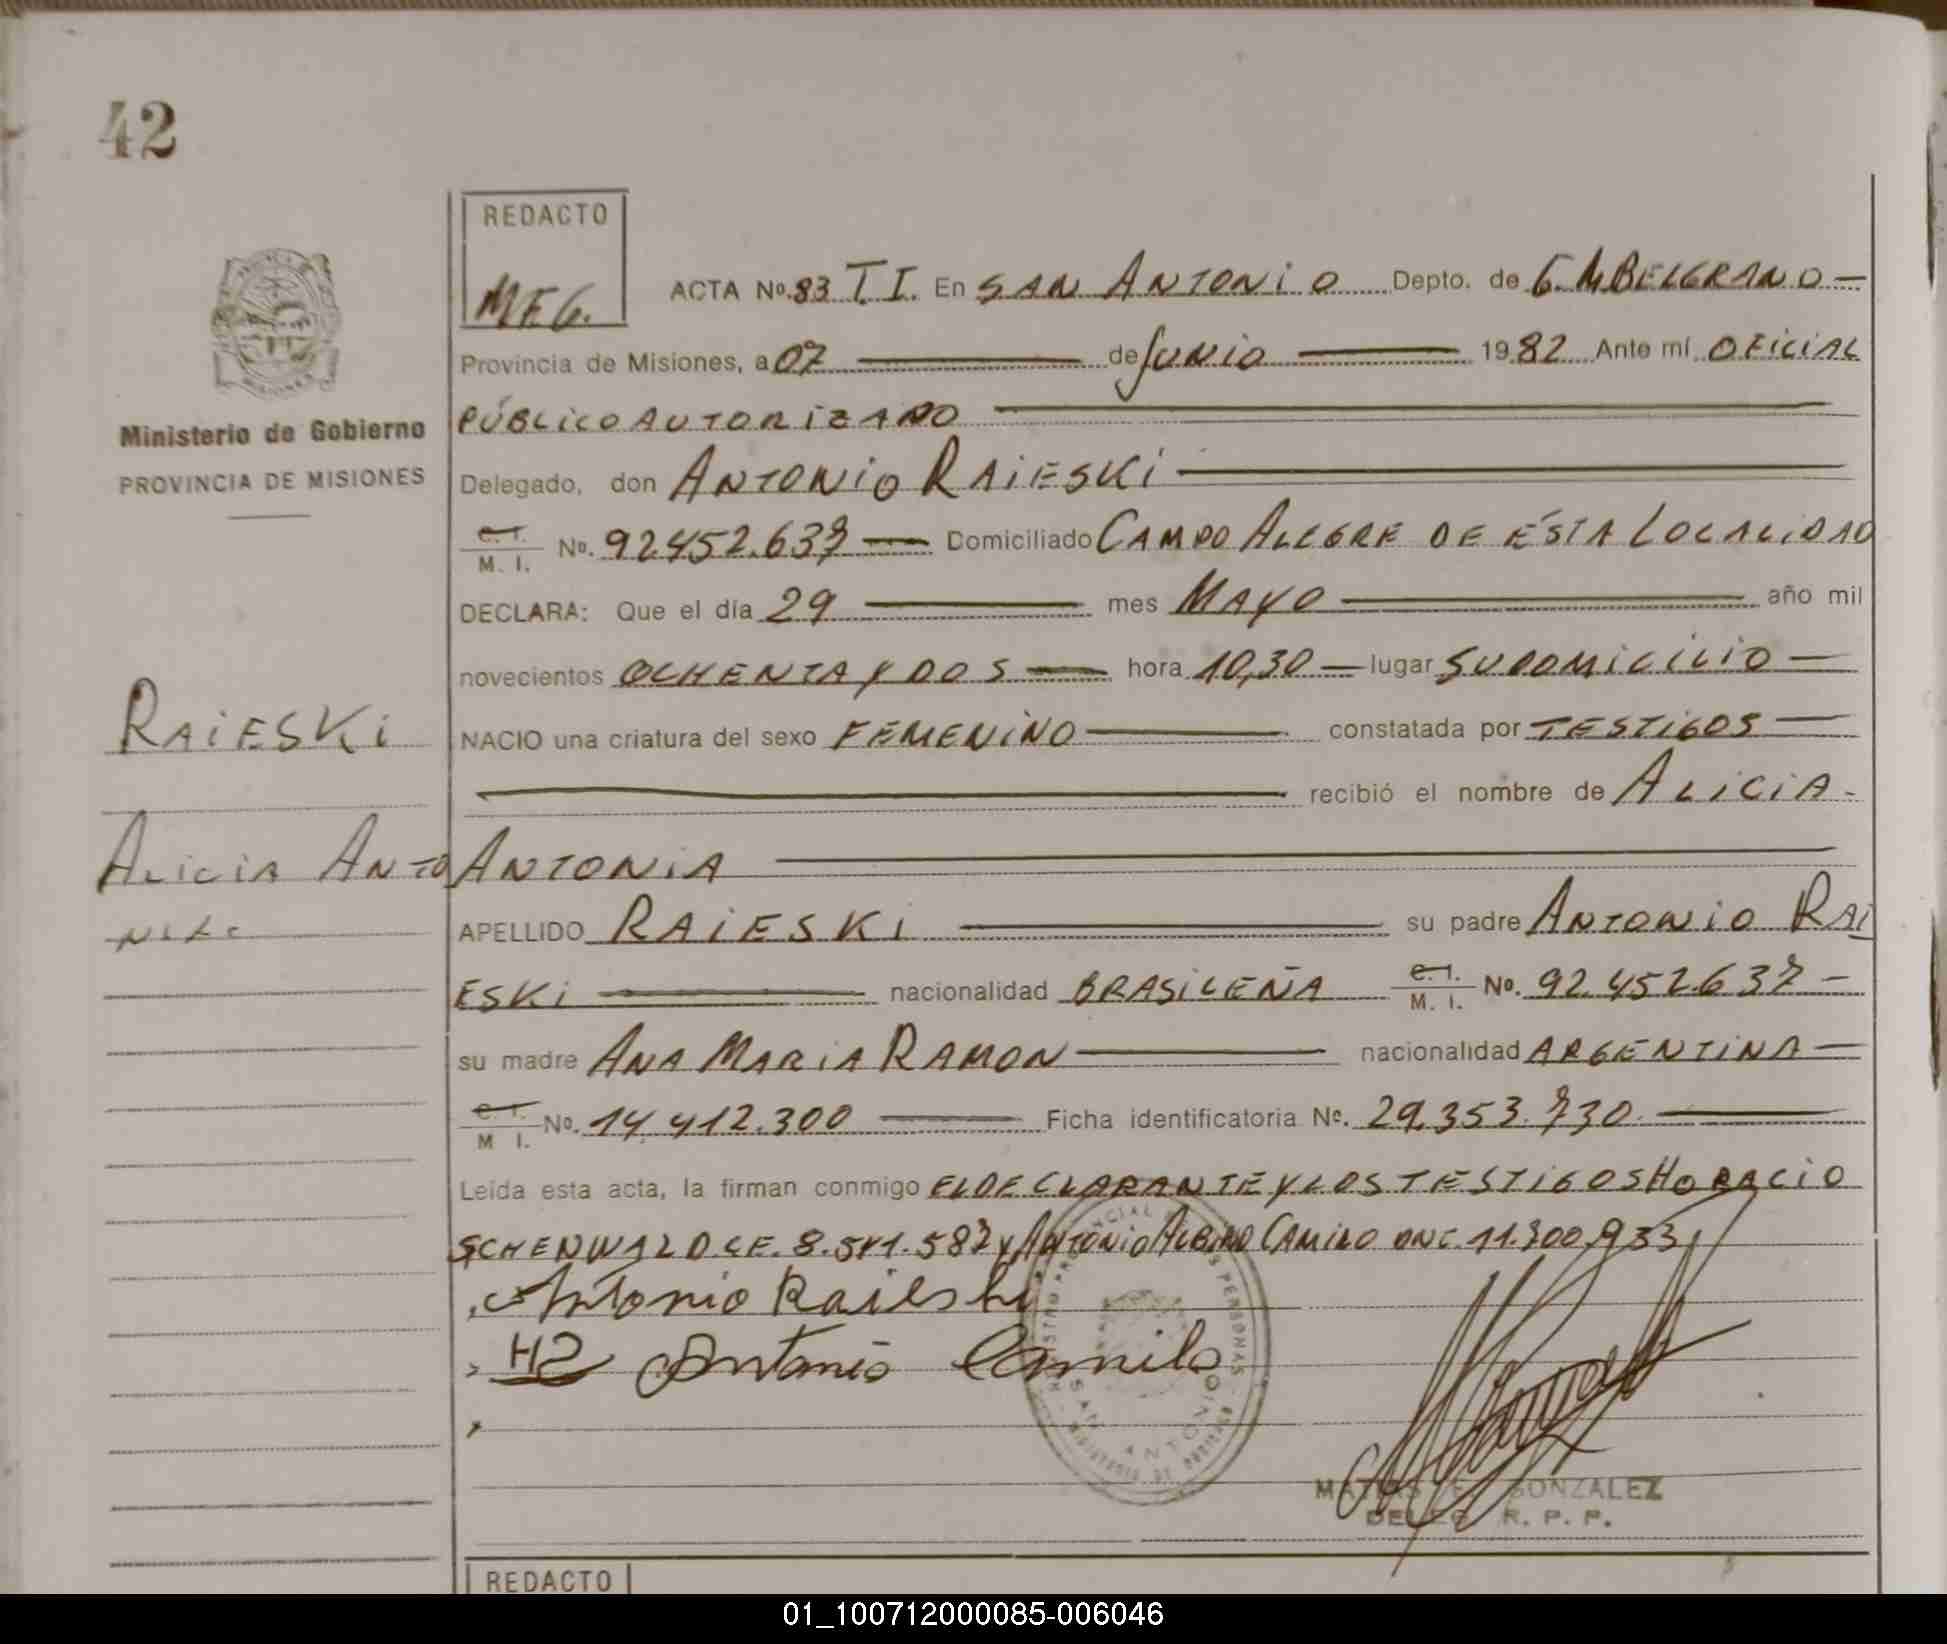 42
REDACTO
M.F.G.
ACTA Nº 83 T.I. En SAN ANTONIO Depto. de G. M. BELGRANO
Provincia de Misiones, a 07 de Junio 1982 Ante mí OFICIAL
PÚBLICO AUTORIZADO
Delegado, don ANTONIO RAIESKI
C. I. M. I. No. 92.452.637 Domiciliado CAMPO ALEGRE DE ÉSTA LOCALIDAD
DECLARA: Que el día 29 mes MAYO año mil
novecientos OCHENTA Y DOS hora 10,30 lugar SU DOMICILIO
NACIO una criatura del sexo FEMENINO constatada por TESTIGOS
recibió el nombre de ALICIA
ANTONIA
APELLIDO RAIESKI su padre ANTONIO RAI
ESKI nacionalidad BRASILEÑA C. I. M. I. No. 92.452.637
su madre ANA MARIA RAMON nacionalidad ARGENTINA
C. I. M I. No. 14.412.300 Ficha identificatoria No. 29.353.730
Leída esta acta, la firman conmigo EL DECLARANTE Y LOS TESTIGOS HORACIO
SCHENWALD C.E. 8.541.587 y ANTONIO ALBINO CAMILO DNC. 11.300.933
Antonio Raieski
HS Antonio Camilo
REGISTRO PROVINCIAL DE LAS PERSONAS
SAN ANTONIO
MINISTERIO DE GOBIERNO
MATIAS F. GONZALEZ
DELEG. R. P. P.
Ministerio de Gobierno
PROVINCIA DE MISIONES
RAIESKI
ALICIA ANTO
REDACTO
01_100712000085-006046